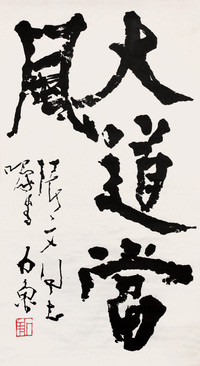 大道當
風
張文同志
囑書 石魯